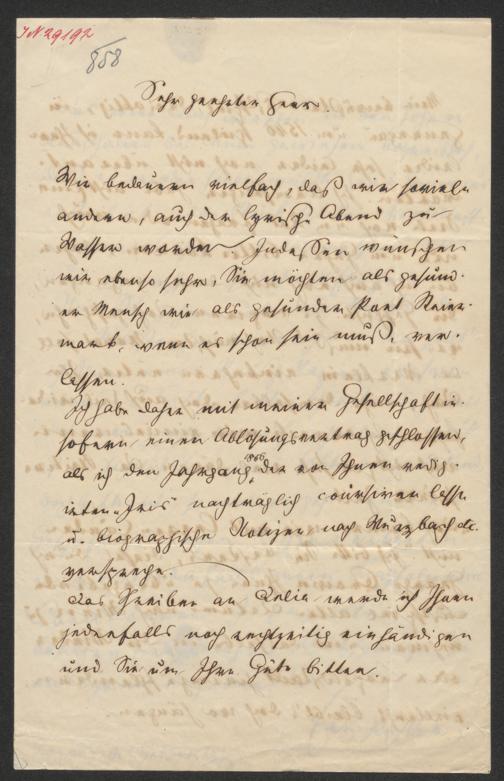 IN 29192
858
Sehr geehrter Herr.
Wir bedauern vielfach, daß wie soviele
andern, auch der lyrische Abend zu
Wasser worden. Indessen wünschen
wir ebenso sehr, Sie möchten als gesund-
er Mensch wie als gesunder Poet Steier-
mark, wenn es schon sein muß, ver-
lassen.
Ich habe daher mit meiner Gesellschaft in-
sofern einen Ablösungsvertrag geschlossen,
als ich den Jahrgang 1866 der von Ihnen redig-
irten "Iris" nachträglich coursiren lasse
u. biographische Notizen nach Wurzbach etc.
verspreche.
Das Schreiben an werde ich Ihnen
jedenfalls noch rechtzeitig einhändigen
und Sie um Ihre Güte bitten.